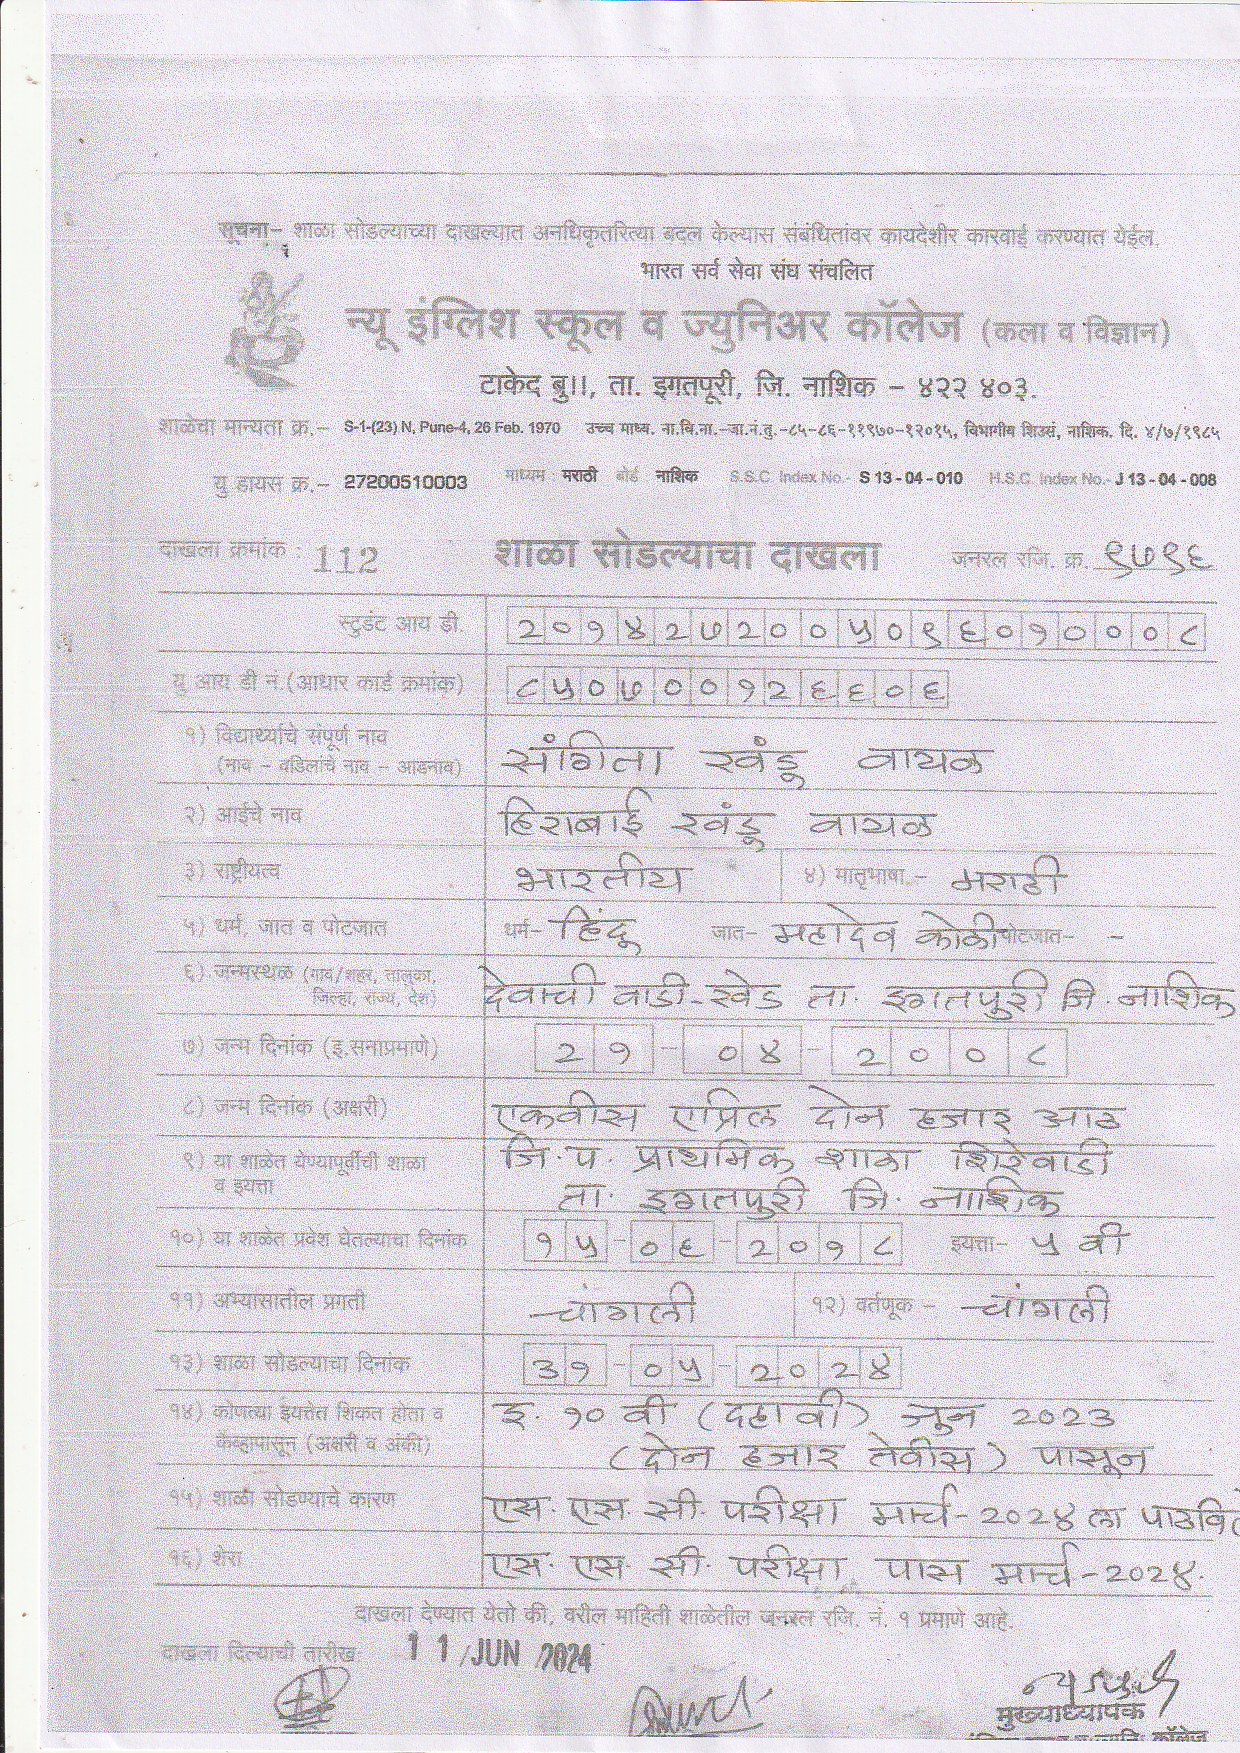 सूचना- शाळा सोडल्याच्या दाखल्यात अनधिकृतरित्या बदल केल्यास संबंधितांवर कायदेशीर कारवाई करण्यात येईल.
भारत सर्व सेवा संघ संचलित
न्यू इंग्लिश स्कूल व ज्युनिअर कॉलेज (कला व विज्ञान)
टाकेद बु।।, ता. इगतपूरी, जि. नाशिक – ४२२ ४०३.
शाळेचा मान्यता क्र.– S-1-(23) N, Pune-4, 26 Feb. 1970 उच्च माध्य. ना.वि.ना.–जा.नं.तु.–८५–८६–११९७०–१२०१५, विभागीय शिउसं, नाशिक. दि. ४/७/१९८५
यु डायस क्र.– 27200510003 माध्यम : मराठी बोर्ड नाशिक S.S.C. Index No.- S 13 - 04 - 010 H.S.C. Index No.- J 13 - 04 - 008
दाखला क्रमांक : 112 शाळा सोडल्याचा दाखला जनरल रजि. क्र. ९७९६
स्टुडंट आय डी. २०१४२७२००५०९६०१०००८
यु आय डी नं.(आधार कार्ड क्रमांक) ८५०७००१२६६०६
१) विद्यार्थ्याचे संपूर्ण नाव सांगिता खंडू वायळ
(नाव – वडिलांचे नाव – आडनाव)
२) आईचे नाव हिराबाई खंडू वायळ
३) राष्ट्रीयत्व भारतीय ४) मातृभाषा – मराठी
५) धर्म, जात व पोटजात धर्म– हिंदू जात– महादेव कोळी पोटजात– -
६) जन्मस्थळ (गाव/शहर, तालुका, देवाची वाडी-खेड ता. इगतपुरी जि. नाशिक
जिल्हा, राज्य, देश)
७) जन्म दिनांक (इ.सनाप्रमाणे) २१-०४-२००८
८) जन्म दिनांक (अक्षरी) एकवीस एप्रिल दोन हजार आठ
९) या शाळेत येण्यापूर्वीची शाळा जि. प. प्राथमिक शाळा शिरेवाडी
व इयत्ता ता. इगतपुरी जि. नाशिक
१०) या शाळेत प्रवेश घेतल्याचा दिनांक १५-०६-२०१८ इयत्ता– ५ वी
११) अभ्यासातील प्रगती चांगली १२) वर्तणूक – चांगली
१३) शाळा सोडल्याचा दिनांक ३१-०५-२०२४
१४) कोणत्या इयत्तेत शिकत होता व इ. १० वी (दहावी) जून २०२३
केव्हापासून (अक्षरी व अंकी) (दोन हजार तेवीस) पासून
१५) शाळा सोडण्याचे कारण एस. एस. सी. परीक्षा मार्च-२०२४ ला पाठवि
१६) शेरा एस. एस. सी. परीक्षा पास मार्च-२०२४.
दाखला देण्यात येतो की, वरील माहिती शाळेतील जनरल रजि. नं. १ प्रमाणे आहे.
दाखला दिल्याची तारीख 11 JUN 2024
मुख्याध्यापक
कॉलेज